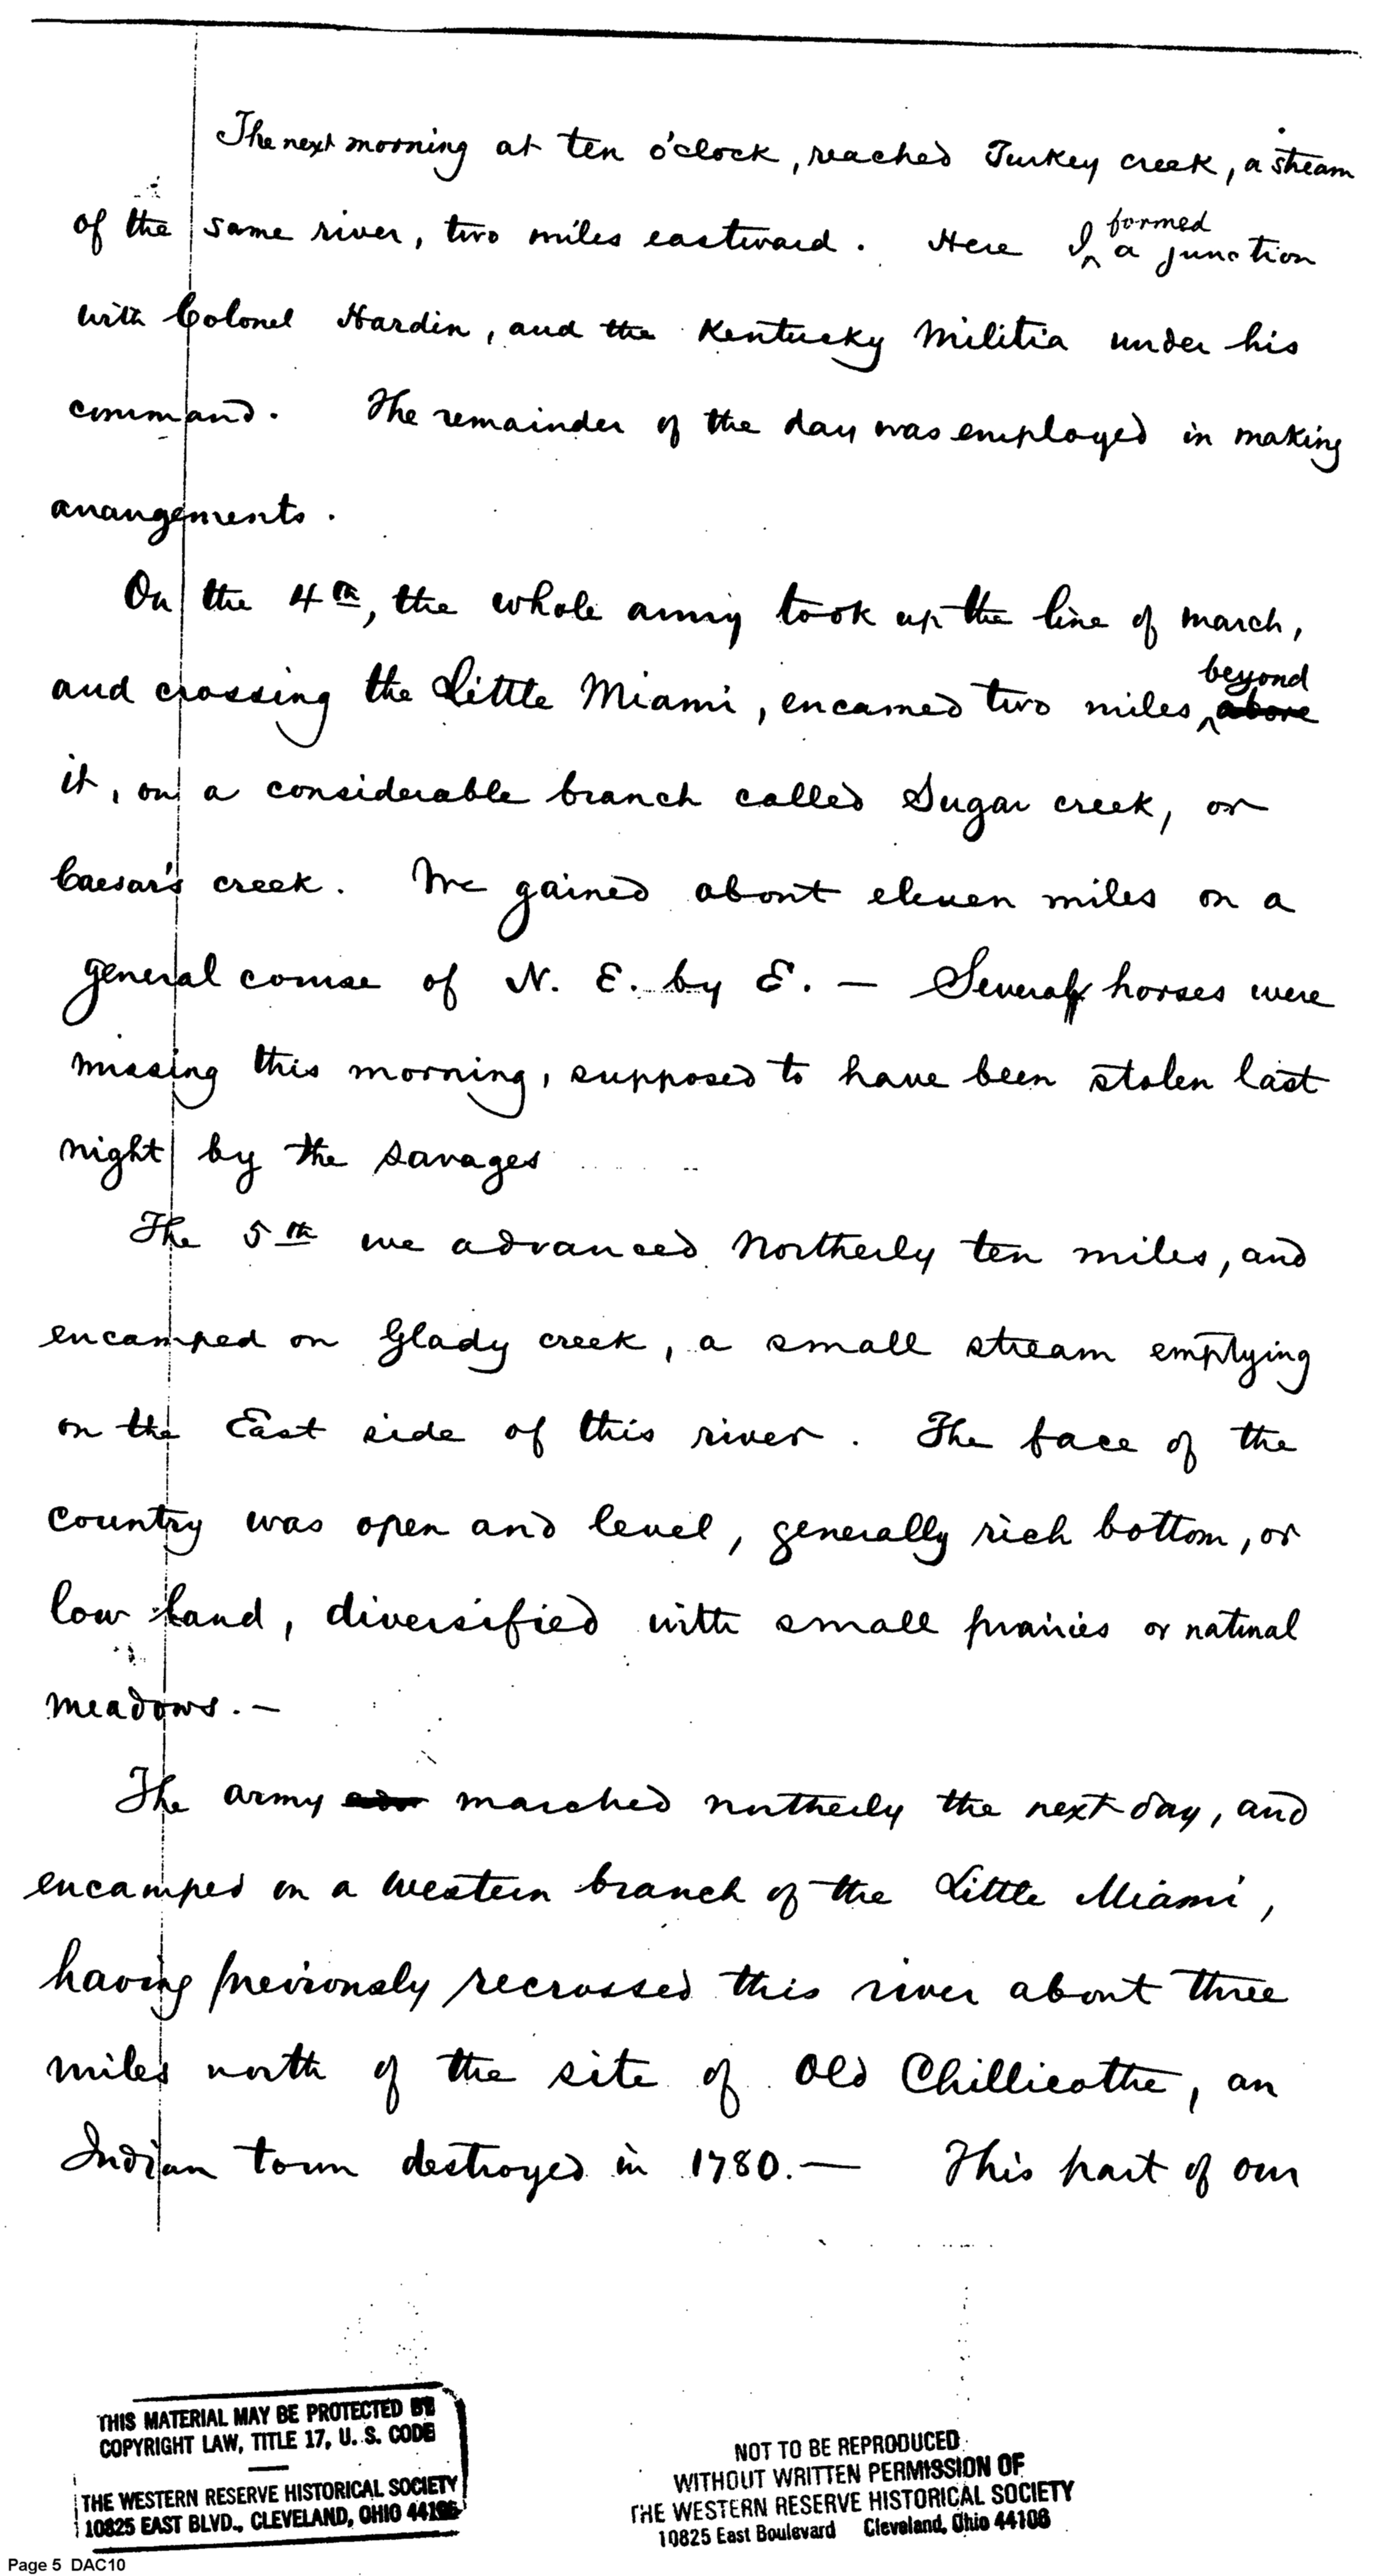 The next morning at ten o'clock, reached Turkey creek, a stream
of the same river, two miles eastward. Here I formed a junction
with Colonel Hardin, and the Kentucky Militia under his
command. The remainder of the day was employed in making
arrangements.
On the 4th, the whole army took up the line of march,
and crossing the Little Miami, encamed two miles beyond above
it, on a considerable branch called Sugar creek, or
Caesar's creek. We gained about eleven miles on a
general course of N. E. by E. — Several horses were
missing this morning, supposed to have been stolen last
night by the savages
The 5th we advanced Northerly ten miles, and
encamped on Glady creek, a small stream emptying
on the East side of this river. The face of the
country was open and level, generally rich bottom, or
low land, diversified with small prairies or natural
meadows. —
The army adv marched northerly the next day, and
encamped on a western branch of the Little Miami,
having previously recrossed this river about three
miles north of the site of Old Chillicothe, an
Indian town destroyed in 1780. — This part of our
THIS MATERIAL MAY BE PROTECTED BY
COPYRIGHT LAW, TITLE 17, U. S. CODE
THE WESTERN RESERVE HISTORICAL SOCIETY
10825 EAST BLVD., CLEVELAND, OHIO 44106
NOT TO BE REPRODUCED
WITHOUT WRITTEN PERMISSION OF
THE WESTERN RESERVE HISTORICAL SOCIETY
10825 East Boulevard Cleveland, Ohio 44106
Page 5 DAC10